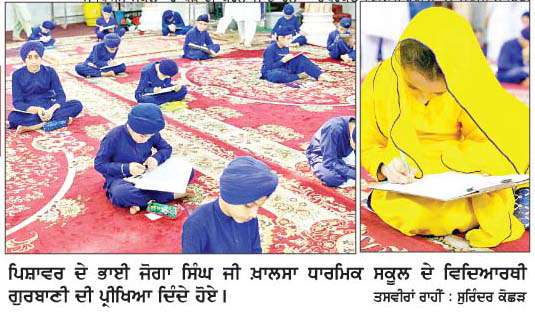 ਪਿਸ਼ਾਵਰ ਦੇ ਭਾਈ ਜੋਗਾ ਸਿੰਘ ਜੀ ਖ਼ਾਲਸਾ ਧਾਰਮਿਕ ਸਕੂਲ ਦੇ ਵਿਦਿਆਰਥੀ
ਗੁਰਬਾਣੀ ਦੀ ਪ੍ਰੀਖਿਆ ਦਿੰਦੇ ਹੋਏ।
ਤਸਵੀਰਾਂ ਰਾਹੀਂ : ਸੁਰਿੰਦਰ ਕੋਛੜ